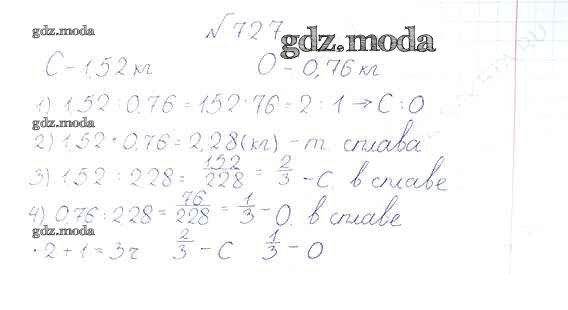 №727
gdz.moda
gdz.moda
С – 1,52 кг О – 0,76 кг
1) 1,52 : 0,76 = 152 : 76 = 2 : 1 → С : О
gdz.moda
2) 1,52 + 0,76 = 2,28 (кг) – т. сплава
3) 1,52 : 2,28 = 152/228 = 2/3 – С. в сплаве
4) 0,76 : 2,28 = 76/228 = 1/3 – О. в сплаве
gdz.moda
• 2 + 1 = 3 ч 2/3 – С 1/3 – О